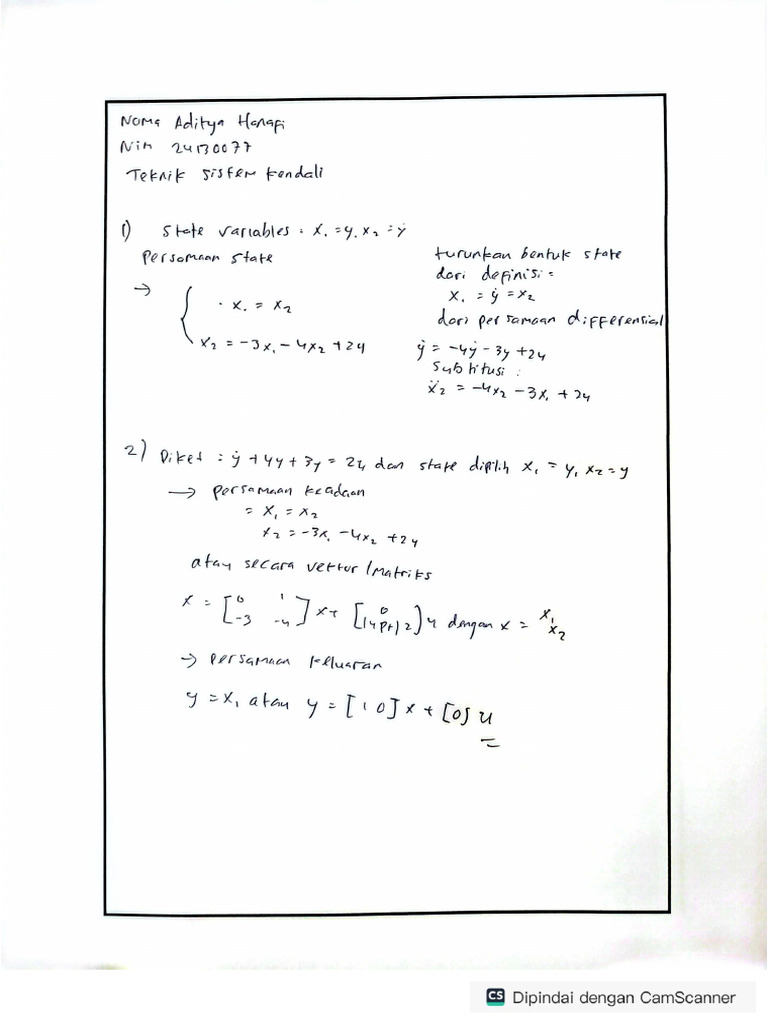 Nama Aditya Hanafi
Nim 24130077
Teknik sistem kendali
1) State variables : x₁ = y, x₂ = ẏ
Persamaan state
→ { · x₁ = x₂
x₂ = -3x₁ - 4x₂ + 2u
turunkan bentuk state
dari definisi =
x₁ = ẏ = x₂
dari persamaan differensial
ẏ = -4ẏ - 3y + 2u
Subtitusi :
ẋ₂ = -4x₂ - 3x₁ + 2u
2) Diket : ẏ + 4y + 3y = 2u dan state dipilih x₁ = y, x₂ = y
→ persamaan keadaan
= x₁ = x₂
x₂ = -3x₁ - 4x₂ + 2u
atau secara vektor / matriks
x = [0 1
-3 -4] x + [0
2] u dengan x = x₁
x₂
→ persamaan keluaran
y = x₁ atau y = [1 0] x + [0] u
CS Dipindai dengan CamScanner